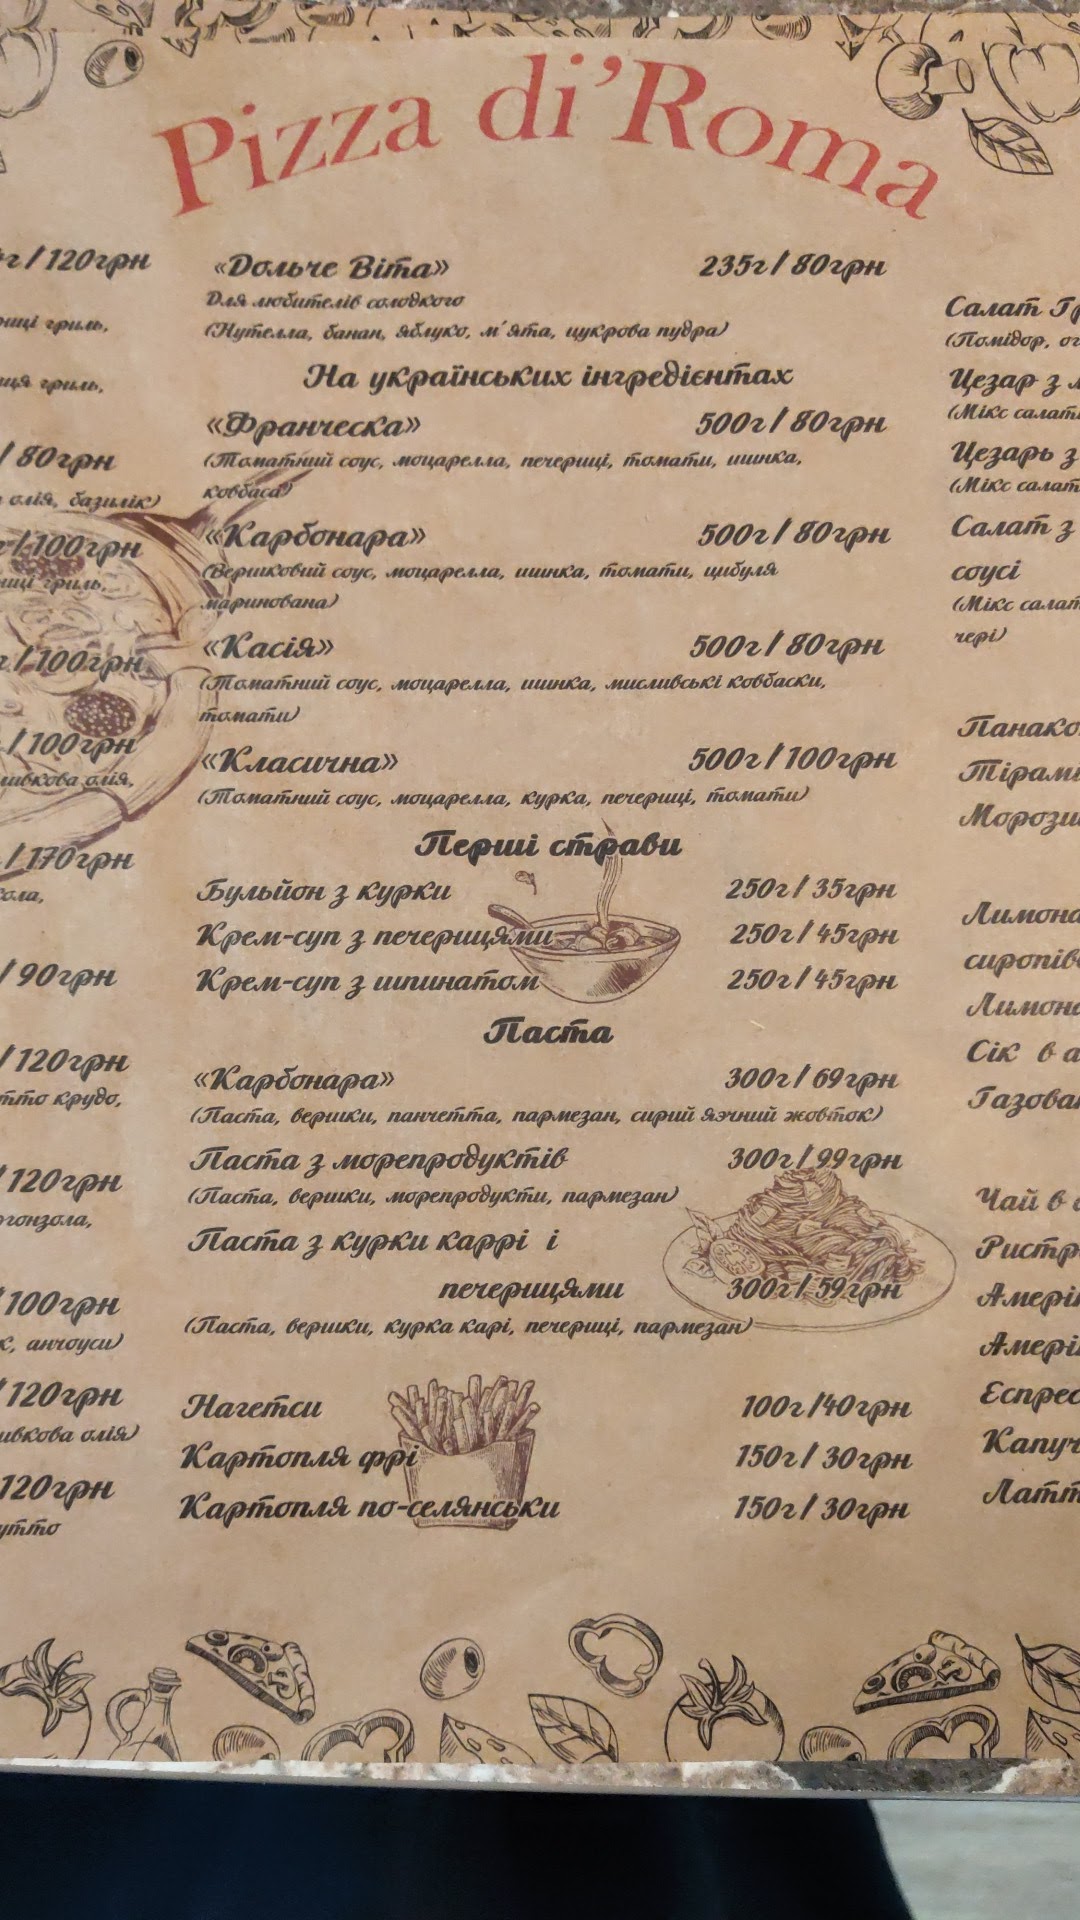 Pizza di'Roma
г/120грн
риці гриль,
ця гриль,
/80грн
олія, базилік)
г/100грн
риці гриль,
г/100грн
/100грн
ливкова олія,
/170грн
/90грн
/120грн
тто крудо,
/120грн
ргонзола,
100грн
к, анчоуси)
/120грн
ивкова олія)
120грн
утто
«Дольче Віта» 235г/80грн
Для любителів солодкого
(Нутелла, банан, яблуко, м'ята, цукрова пудра)
На українських інгредієнтах
«Франческа» 500г/80грн
(Томатний соус, моцарелла, печериці, томати, шинка,
ковбаса)
«Карбонара» 500г/80грн
(Вершковий соус, моцарелла, шинка, томати, цибуля
маринована)
«Касія» 500г/80грн
(Томатний соус, моцарелла, шинка, мисливські ковбаски,
томати)
«Класична» 500г/100грн
(Томатний соус, моцарелла, курка, печериці, томати)
Перші страви
Бульйон з курки 250г/35грн
Крем-суп з печерицями 250г/45грн
Крем-суп з шпинатом 250г/45грн
Паста
«Карбонара» 300г/69грн
(Паста, вершки, панчетта, пармезан, сирий яєчний жовток)
Паста з морепродуктів 300г/99грн
(Паста, вершки, морепродукти, пармезан)
Паста з курки каррі і
печерицями 300г/59грн
(Паста, вершки, курка карі, печериці, пармезан)
Нагетси 100г/40грн
Картопля фрі 150г/30грн
Картопля по-селянськи 150г/30грн
Салат Гр
(Помідор, ог
Цезар з
(Мікс салат
Цезарь з
(Мікс салат
Салат з
соусі
(Мікс салат
чері)
Панако
Тірамі
Морози
Лимона
сиропів
Лимона
Сік в а
Газован
Чай в
Ристр
Амері
Амері
Еспрес
Капуч
Латт